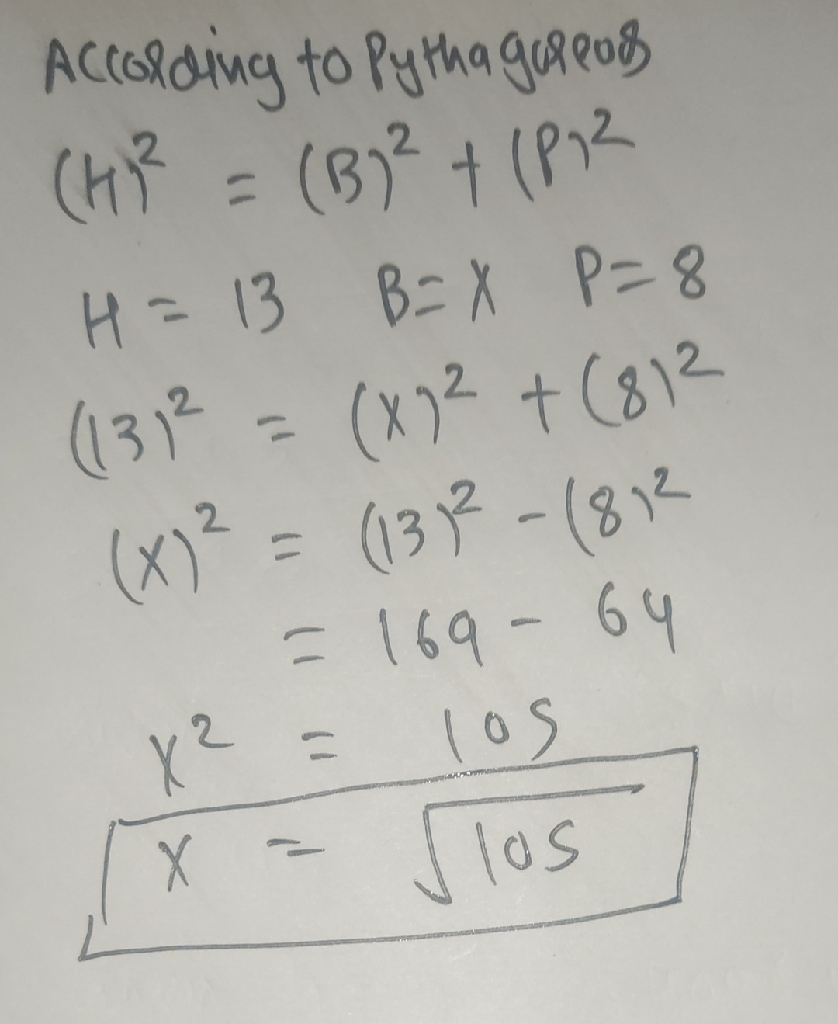 According to Pythagoreos
(H)² = (B)² + (P)²
H = 13 B = X P = 8
(13)² = (x)² + (8)²
(x)² = (13)² - (8)²
= 169 - 64
x² = 105
x = √105